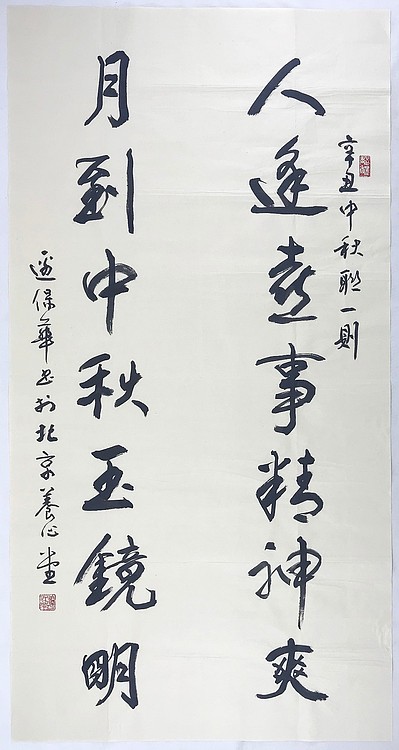 辛丑中秋联一则
人逢喜事精神爽
月到中秋玉镜明
边保华书于北京養心堂